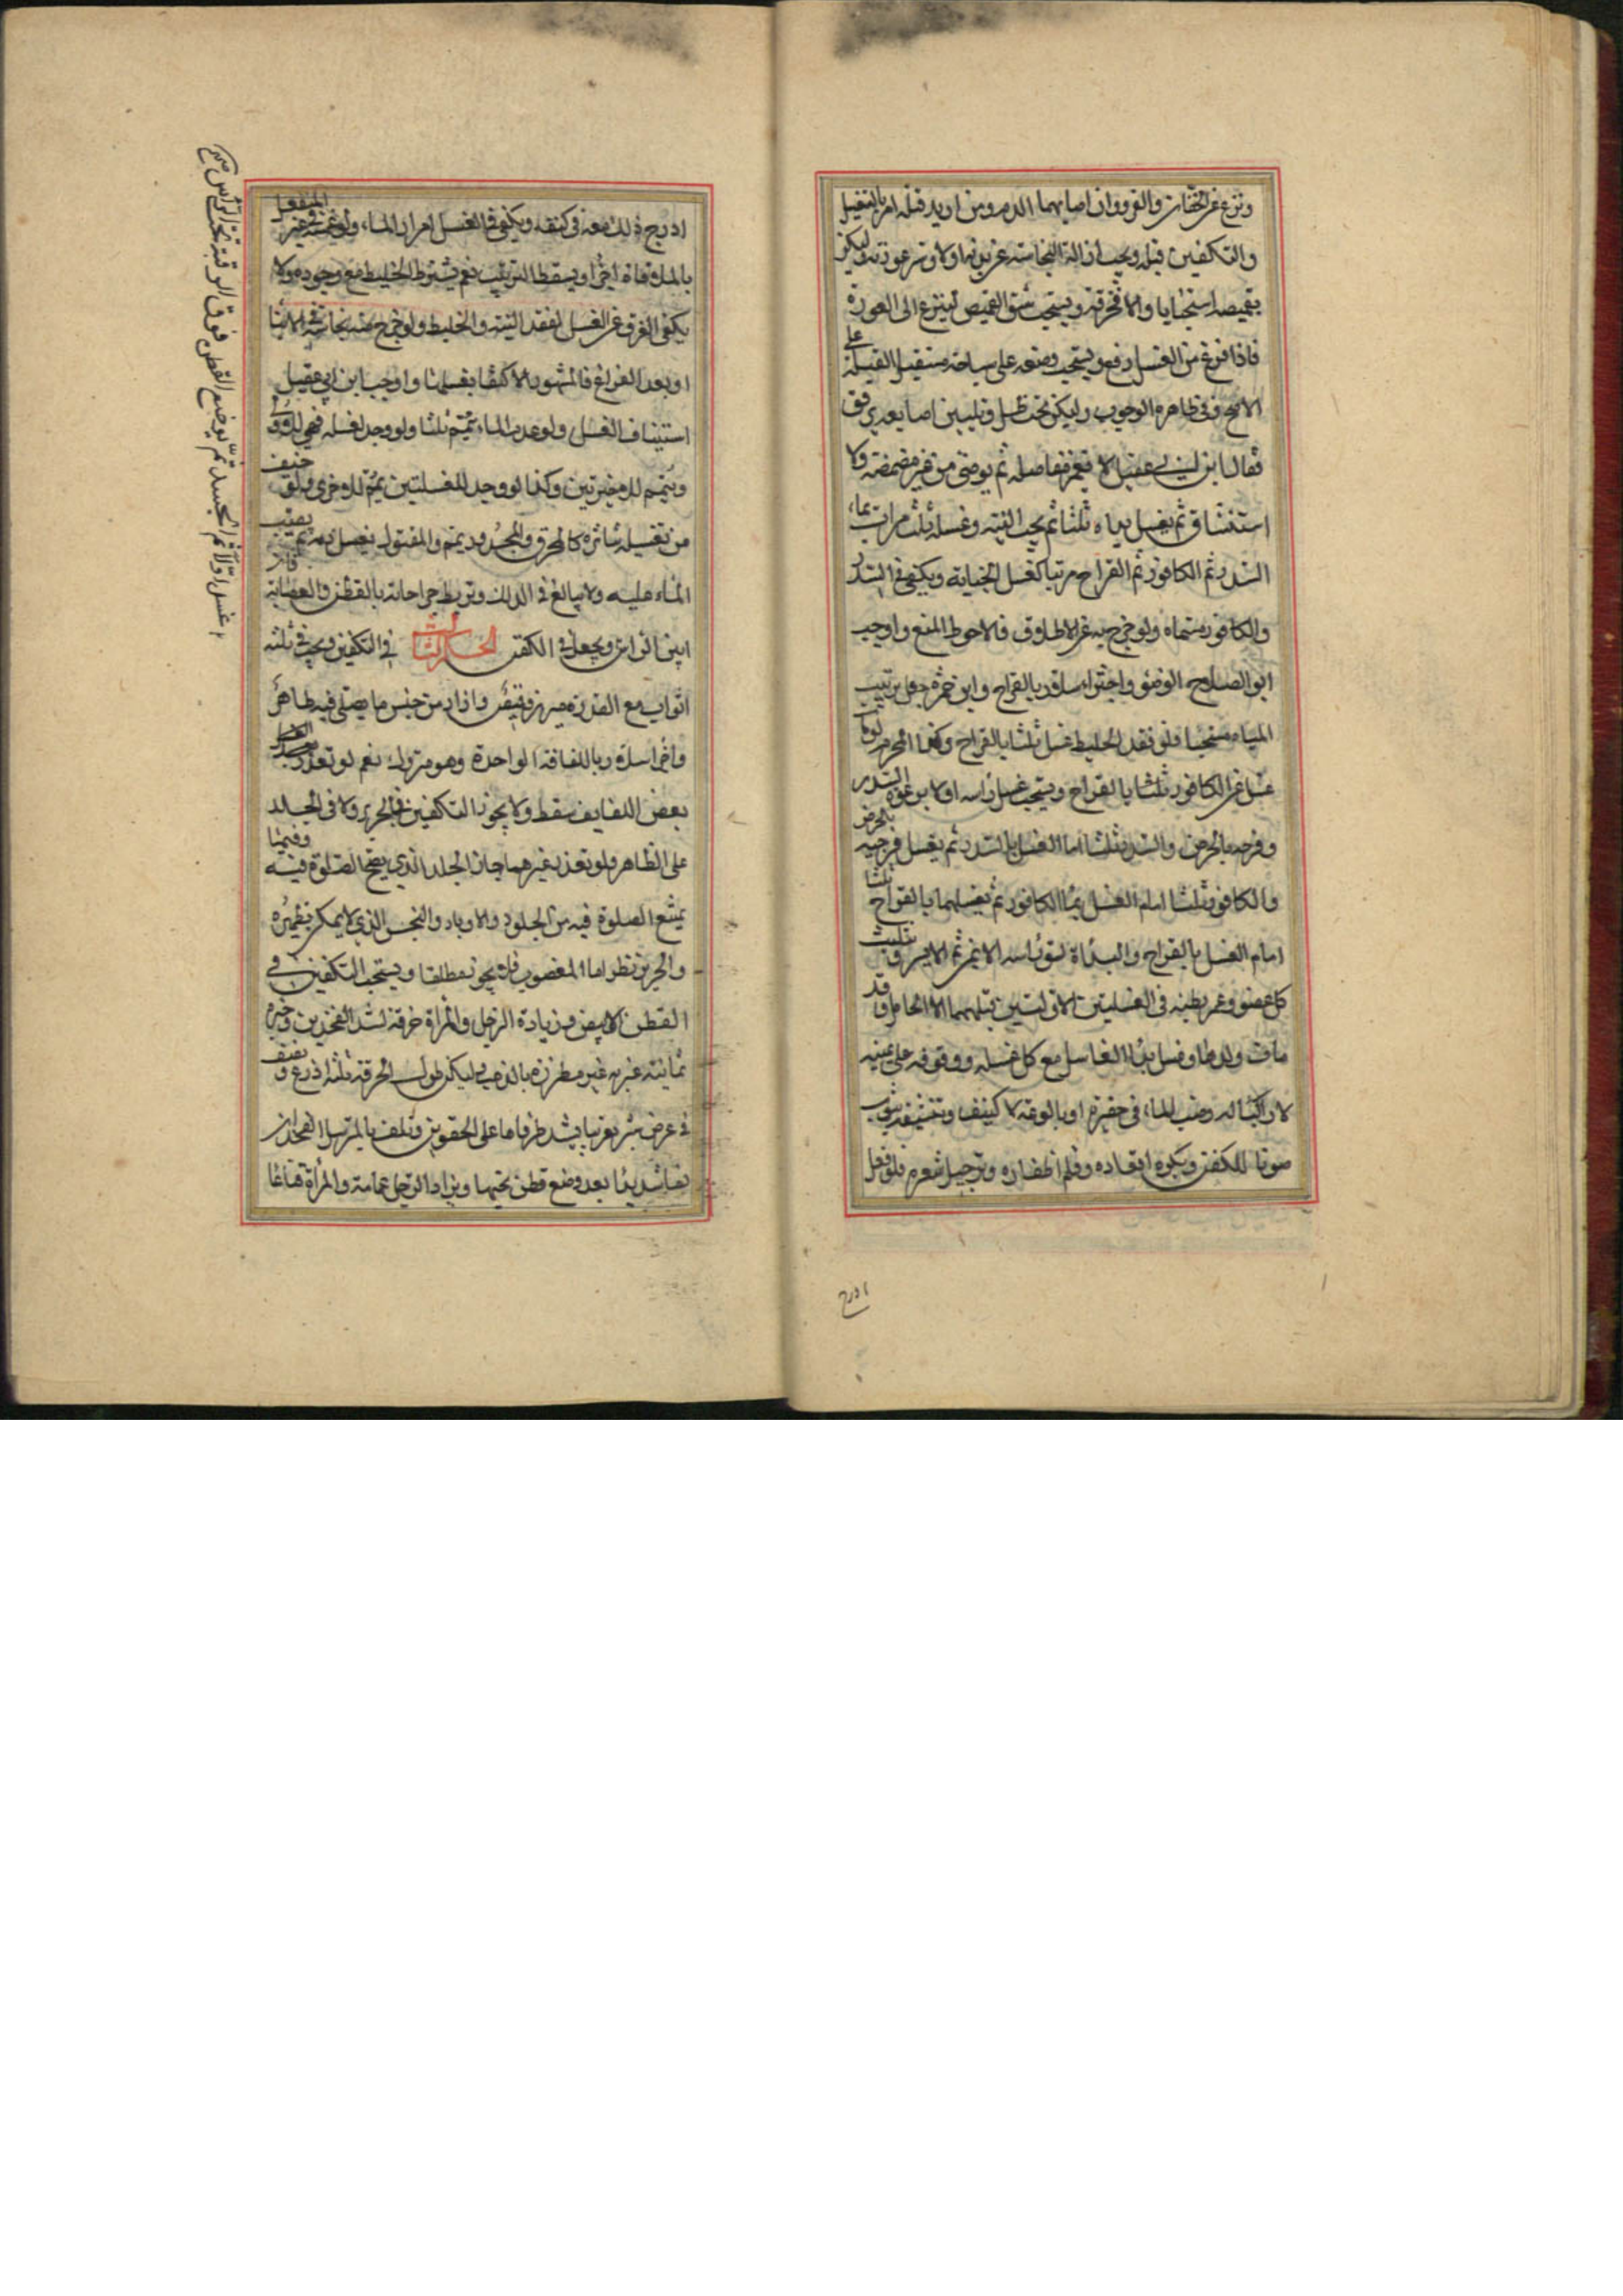 ونزع عنه الخفان والفرو وان اصابهما الدم ومن اريد قتله امر بالتغسيل
والتكفين قبله ويجب ازالة النجاسة عن بدنه اولا وستر عورته وليكن
بقميصه استحبابا والا فخرقة ويستحب شق القميص لينزع الى العورة
فاذا فرغ من الغسل رفع ويستحب وضعه على ساجة مستقبل القبلة على
الاصح وفي ظاهره الوجوب وليكن تحت ظل وتليين اصابعه برفق
فقال ابن ابي عقيل لا يغمز مفاصله ثم يوضئ من غير مضمضة ولا
استنشاق ثم يغسل يداه ثلثا ثم يجب النية وغسله ثلث مرات بماء
السدر ثم الكافور ثم القراح مرتبا كغسل الجنابة ويكفي في السدر
والكافور مسماه ولو خرج به عن الاطلاق فالاحوط المنع واوجب
ابو الصلاح الوضوء واجتزأ سلار بالقراح وابن حمزة جعل ترتيب
المياه مستحبا فلو فقد الخليط غسل ثلثا بالقراح وكذا المحرم لو مات
غسل عن الكافور ثلثا بالقراح ويستحب غسل راسه اولا برغوة السدر
وفرجه بالحرض والسدر ثلثا امام الغسل بالسدر ثم يغسل فرجيه بالحرض
والكافور ثلثا امام الغسل بماء الكافور ثم يغسلهما بالقراح ثلثا
امام الغسل بالقراح والبدأة بشق راسه الايمن ثم الايسر وتثليث
كل عضو وغمز بطنه في الغسلتين الاولتين قبلهما الا الحامل وقد
مات ولدها وغسل يدا الغاسل مع كل غسلة ووقوفه على يمينه
لا راكبا له وصب الماء في حفيرة او بالوعة لا كنيف وتنشيفه بثوب
صونا للكفن ويكره اقعاده وقلم اظفاره وترجيل شعره فلو فعل
ادرج
ادرج ذلك معه في كفنه ويكفي في الغسل امرار الماء ولو غمسه في غير المنفعل
بالملاقاة اجزا ويسقط الترتيب نعم يشترط الخليط مع وجوده ولا
يكفي الغرق عن الغسل لفقد النية والخليط ولو خرج منه نجاسة في الاثناء
او بعد الفراغ فالمشهور الاكتفاء بغسلها واوجب ابن ابي عقيل
استيناف الغسل ولو عدم الماء تيمم ثلثا ولو وجد لغسله فهي للاولى
وييمم للاخيرتين وكذا لو وجد للغسلتين يمم للاخرى ولو خيف
من تغسيله تناثره كالمحترق والمجدور يمم والمقتول يغسل دمه ثم يصب
الماء عليه ولا يبالغ في الدلك وتربط جراحاته بالقطن والعصابة
ابين الراس ويجعل في الكفن الحكم الثالث في التكفين ويجب في ثلثة
اثواب مع القدرة ميزر وقميص وازار من جنس ما يصلى فيه طاهر
واجتزا سلار باللفافة الواحدة وهو متروك نعم لو تعذر
بعض اللفايف سقط ولا يجوز التكفين في الحرير ولا في الجلد
على الظاهر ولو تعذر غيرهما جاز الجلد الذي يصح الصلوة فيه وفيما
يمتنع الصلوة فيه من الجلود والاوبار والنجس الذي لا يمكن تطهيره
والحرير نظر اما المغصوب فلا يجوز مطلقا ويستحب التكفين في
القطن الابيض وزيادة الرجل والمراة خرقة لشد الفخذين وحبرة
يمانية عبرية غير مطرزة بالذهب وليكن طول الخرقة ثلثة اذرع ونصف
في عرض شبر تقريبا يشد طرفاها على الحقوين وتلف بالمسترسل الفخذان
لفا شديدا بعد وضع قطن تحتها ويزاد الرجل عمامة والمراة قناعا
غسل اولا ثم الجسد ثم يوضع القطن فوق الرقبة